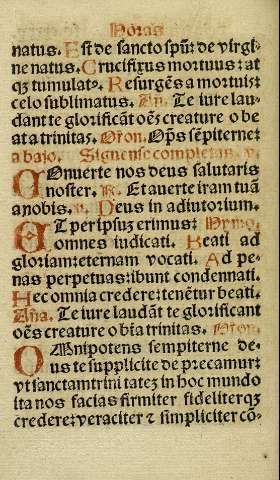 Horas
natus. Est de sancto spũ: de virgi-
ne natus. Crucifixus mortuus: at
qz tumulatꝰ. Resurgẽs a mortuis:
celo sublimatus. Añ. Te iure lau-
dant te glorificãt oẽs creature o be
ata trinitas. Oron. Oṗs sẽpiterne:
a bajo. Siguense completas. v.
COnuerte nos deus salutaris
noster. R. Et auerte iram tuã
a nobis. v. Deus in adiutorium.
ET per ipsuz erimus: Hymo.
omnes iudicati. Beati ad
gloriam: eternam vocati. Ad pe-
nas perpetuas: ibunt condennati.
Hec omnia credere: tenẽtur beati.
Aña. Te iure laudãt te glorificant
oẽs creature o bt̃a trinitas. Oron.
OMnipotens sempiterne de-
us te supplicite deprecamur:
vt sanctam trinitatez in hoc mundo
ita nos facias firmiter fideliterqz
credere: veraciter ⁊ simpliciter cõ-